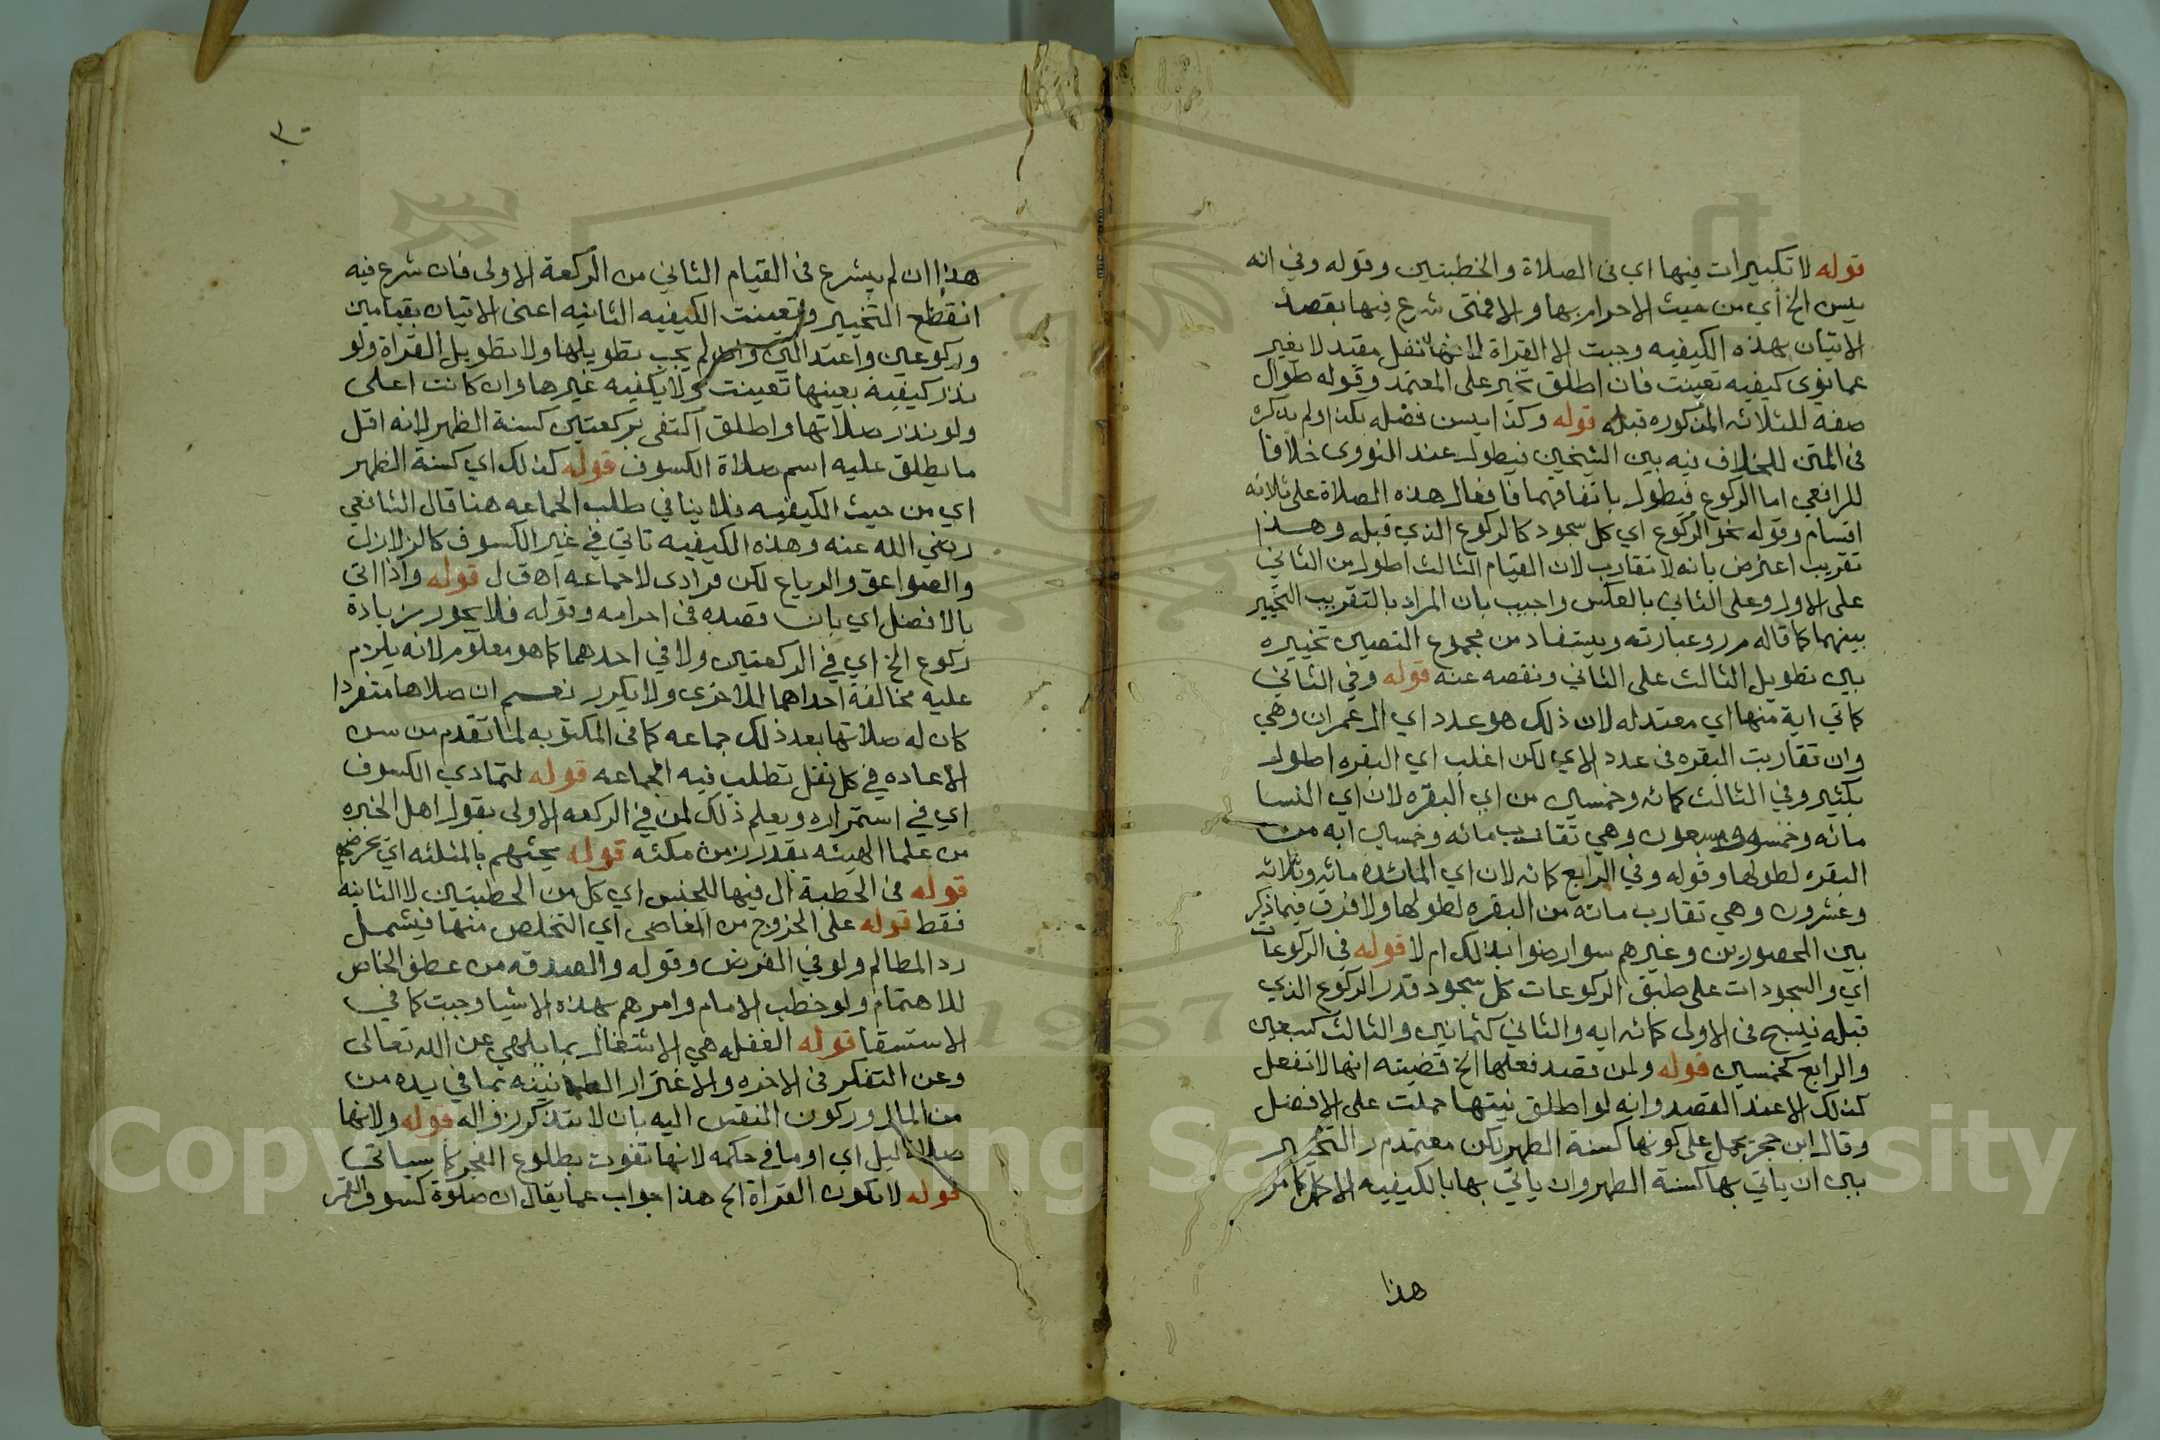 قوله لا تكبيرات فيها اي في الصلاة والخطبتين وقوله وفي انه
ليس الخ أي من حيث الاحرام بها والا فمتى شرع فيها بقصد
الاتيان بهذه الكيفيه وجبت الا القراة لانها نفل مقيد لا يغير
عما نوى كيفيه تعينت فان اطلق تخير على المعتمد وقوله طوال
صفة للثلاثه المذكوره قبله قوله وكذا يسن فضله بكذا ولم يذكره
في المتن للخلاف فيه بين الشيخين فيطول عند النووى خلافا
للرافعي اما الركوع فيطول باتفاقهما فافعال هذه الصلاة على ثلاثه
اقسام وقوله نحو الركوع اي كل سجود كالركوع الذي قبله وهذا
تقريب اعترض بانه لا تقارب لان القيام الثالث اطول من الثاني
على الاول وعلى الثاني بالعكس واجيب بان المراد بالتقريب التخيير
بينهما كما قاله م ر وعبارته ويستفاد من مجموع النصين تخييره
بين تطويل الثالث على الثاني ونقصه عنه قوله وفي الثاني
كمأتي اية منها اي معتدله لان ذلك هو عدد اي ال عمران وهي
وان تقاربت البقره في عدد الاي لكن اغلب اي البقره اطول
بكثير وفي الثالث كمائه وخمسين من اي البقره لان اي النسا
مائه وخمسه وسبعون وهي تقارب مائه وخمسين ايه من
البقره لطولها وقوله وفي الرابع كمائه لان اي المائده مائه وثلاثه
وعشرون وهي تقارب مائه من البقره لطولها ولا فرق فيما ذكر
بين المحصورين وغيرهم سوا رضوا بذلك ام لا قوله في الركوعات
اي والسجودات على طبق الركوعات كل سجود قدر الركوع الذي
قبله فيسبح في الاولى كمائه ايه والثاني كثمانين والثالث كسبعين
والرابع كخمسين قوله ولمن قصد فعلها الخ قضيته انها لا تفعل
كذلك الا عند القصد وانه لو اطلق نيتها حملت على الافضل
وقال ابن حجر يحمل على كونها كسنة الظهر لكن معتمد م ر التخيير
بين ان ياتي بها كسنة الظهر وان ياتي بها بالكيفيه الاكمل كما مر
هذا
٣٠
هذا ان لم يشرع في القيام الثاني من الركعة الاولى فان شرع فيه
انقطع التخيير وتعينت الكيفيه الثانيه اعنى الاتيان بقيامين
وركوعين واعتدالين وان لم يجب تطويلها ولا تطويل القراة ولو
نذر كيفية بعينها تعينت ولا يكفيه غيرها وان كانت اعلى
ولو نذر صلاتها واطلق اكتفى بركعتين كسنة الظهر لانه اقل
ما يطلق عليه اسم صلاة الكسوف قوله كذلك اي كسنة الظهر
اي من حيث الكيفيه فلا ينافي طلب الجماعه هنا قال الشافعي
رضي الله عنه وهذه الكيفيه تاتي في غير الكسوف كالزلازل
والصواعق والرياح لكن فرادى لا جماعه اه ق ل قوله واذا اتى
بالافضل اي بان قصده في احرامه وقوله فلا يجوز زيادة
ركوع الخ اي في الركعتين ولا في احدهما كما هو معلوم لانه يلزم
عليه مخالفة احداهما للاخرى ولا يكرر نعم ان صلاها منفردا
كان له صلاتها بعد ذلك جماعه كما في المكتوبه لما تقدم من سن
الاعاده في كل نفل تطلب فيه الجماعه قوله لتمادي الكسوف
اي في استمراره ويعلم ذلك لمن في الركعه الاولى بقول اهل الخبره
من علما الهيئه بقدر زمن مكثه قوله يحثهم بالمثلثه اي يحرضهم
قوله في الخطبة ال فيها للجنس اي كل من الخطبتين لا الثانيه
فقط قوله على الخروج من المعاصي اي التخلص منها فيشمل
رد المظالم ولو في العرض وقوله والصدقه من عطف الخاص
للاهتمام ولو خطب الامام وامرهم بهذه الاشيا وجبت كما في
الاستسقا قوله الغفله هي الاشتغال بما يلهي عن الله تعالى
وعن التفكر في الاخره والاغترار الطمانينه بما في يده من
من المال وركون النفس اليه بان لا يتذكر زواله قوله ولانها
صلاة ليل اي او ما في حكمه لانها تفوت بطلوع الفجر كما سياتي
قوله لا تكون القراة الخ هذا جواب عما يقال ان صلاة كسوف القمر
1957
Copyright © King Saud University